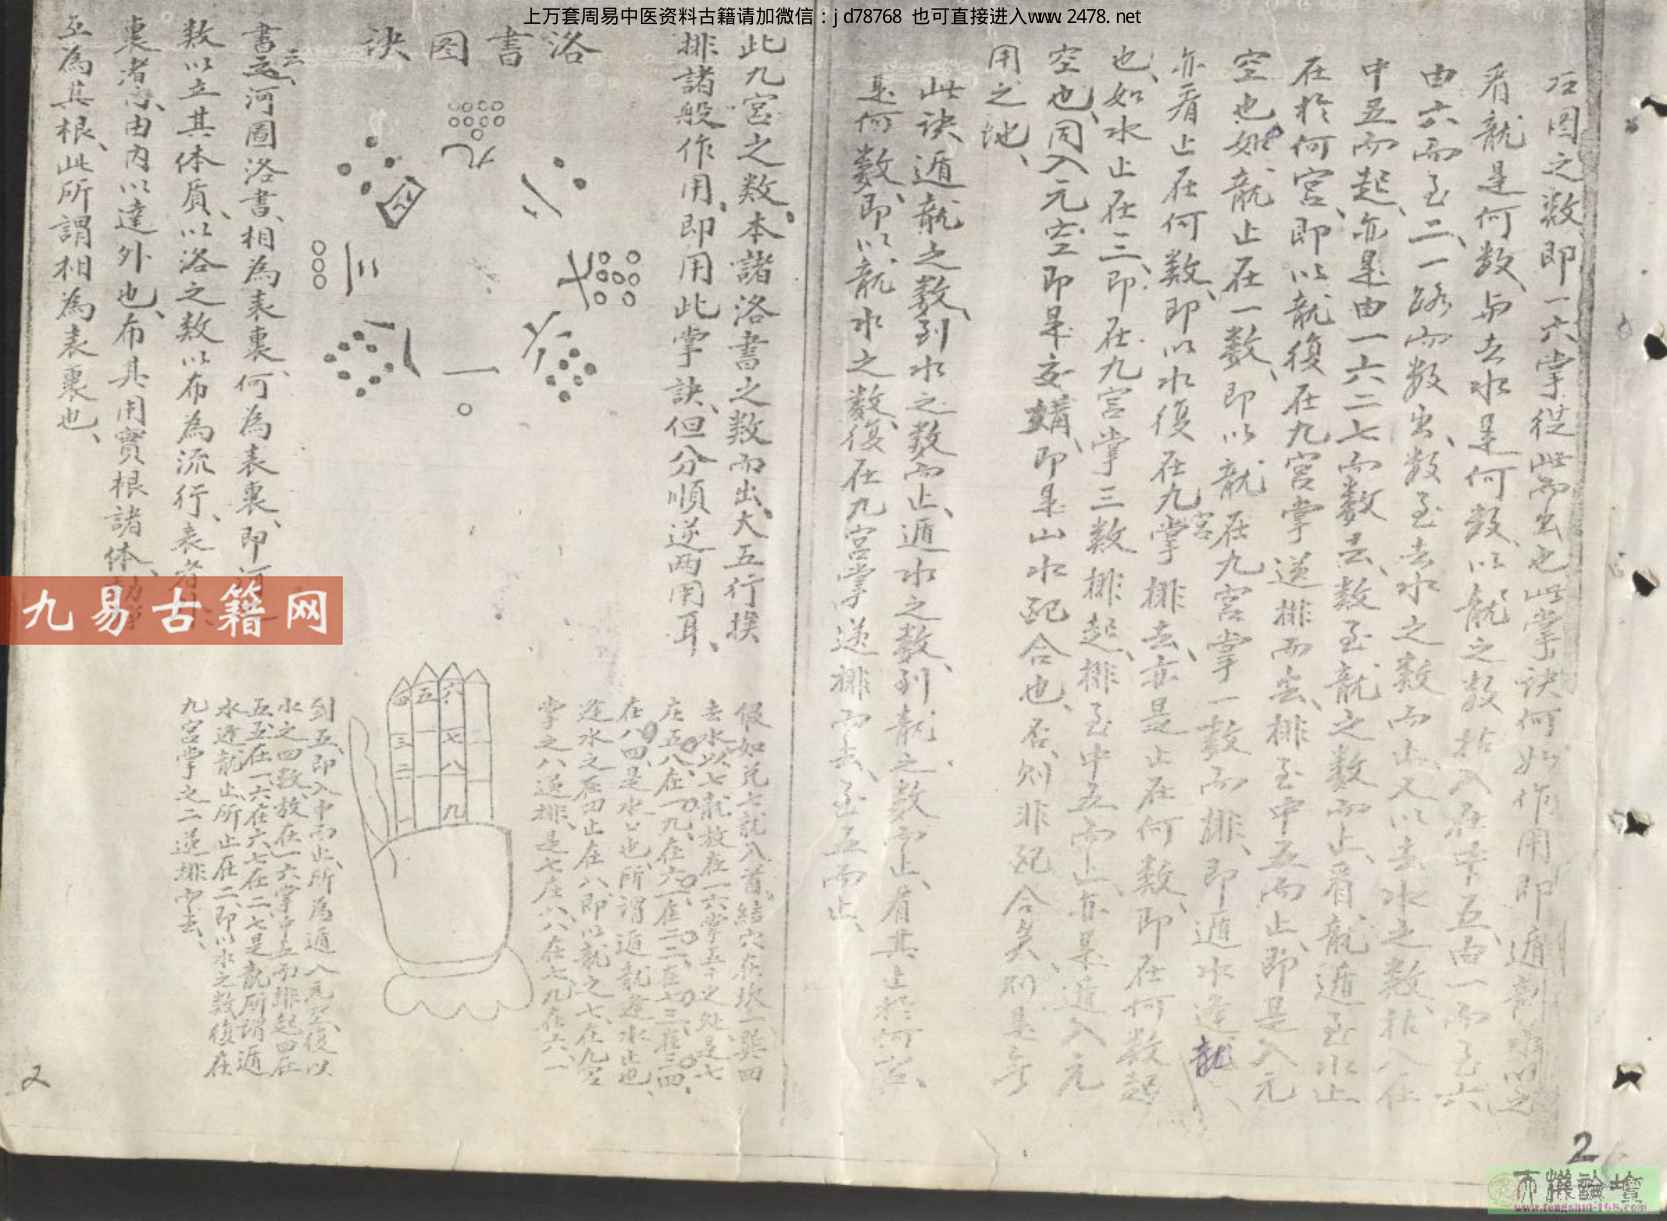 上万套周易中医资料古籍请加微信：jd78768 也可直接进入www.2478.net
右图之数即一六掌從此而出也此掌訣何如作用即遁
看龍是何数、与去水是何数、以龍之数拈入在中五、由一而至六
由六而至二、一路而数出、数至去水之数而止又以去水之数、拈入在
中五而起、亦是由一六二七而数去、数至龍之数而止、看龍遁至水止
在於何宮、即以龍復在九宮掌逆排而去、排至中五而止、即是入元
空也、如龍止在一数、即以龍在九宮掌一数而排、即遁水逢龍、
亦看止在何数、即以水復在九宮掌排去、亦是止在何数、即在何数起
也、如水止在三、即在九宮掌三数排起、排至中五而止、亦是遁入元
空也、同入元空、即是交媾、即是山水配合也、否則非配合矣、則是無
用之地、
此訣遁龍之数、到水之数而止、遁水之数、到龍之数而止、看其止於何宮、
是何数、即以龍水之数、復在九宮掌逆排而去、至五而止、
此九宮之数、本諸洛書之数而出、大五行挨
排諸般作用、即用此掌訣、但分順逆兩用耳、
假如兌七龍入首、結穴在坎一巽四
去水以七龍放在一六掌五之处、是七
在五八在一九、在六一在二二在七三在三四、
在八四、是水口也、所謂遁龍逢水止也、
逢水之在四止在八即以龍之七、在九宮
掌之八逆排、是七在八、八在七、九在六、一
到五、即入中而止、所為遁入元空、後以
水之四数放在一六掌中五而排起四在
五五在一六在六七在二、七是龍所謂遁
水逢龍止、所止在二、即以水之数復在
九宮掌之二逆排而去、
洛書图訣
九
二
四
七
三
六
八
一
四 五 六
三 七
二 八
一 九
書云、河圖洛書、相為表裏、何為表裏、即河
数以立其体質、以洛之数以布為流行、表者
裏者、由内以達外也、布其用實根諸体
互為其根、此所謂相為表裏也、
九易古籍网
2
2
www.fengshui-168.com